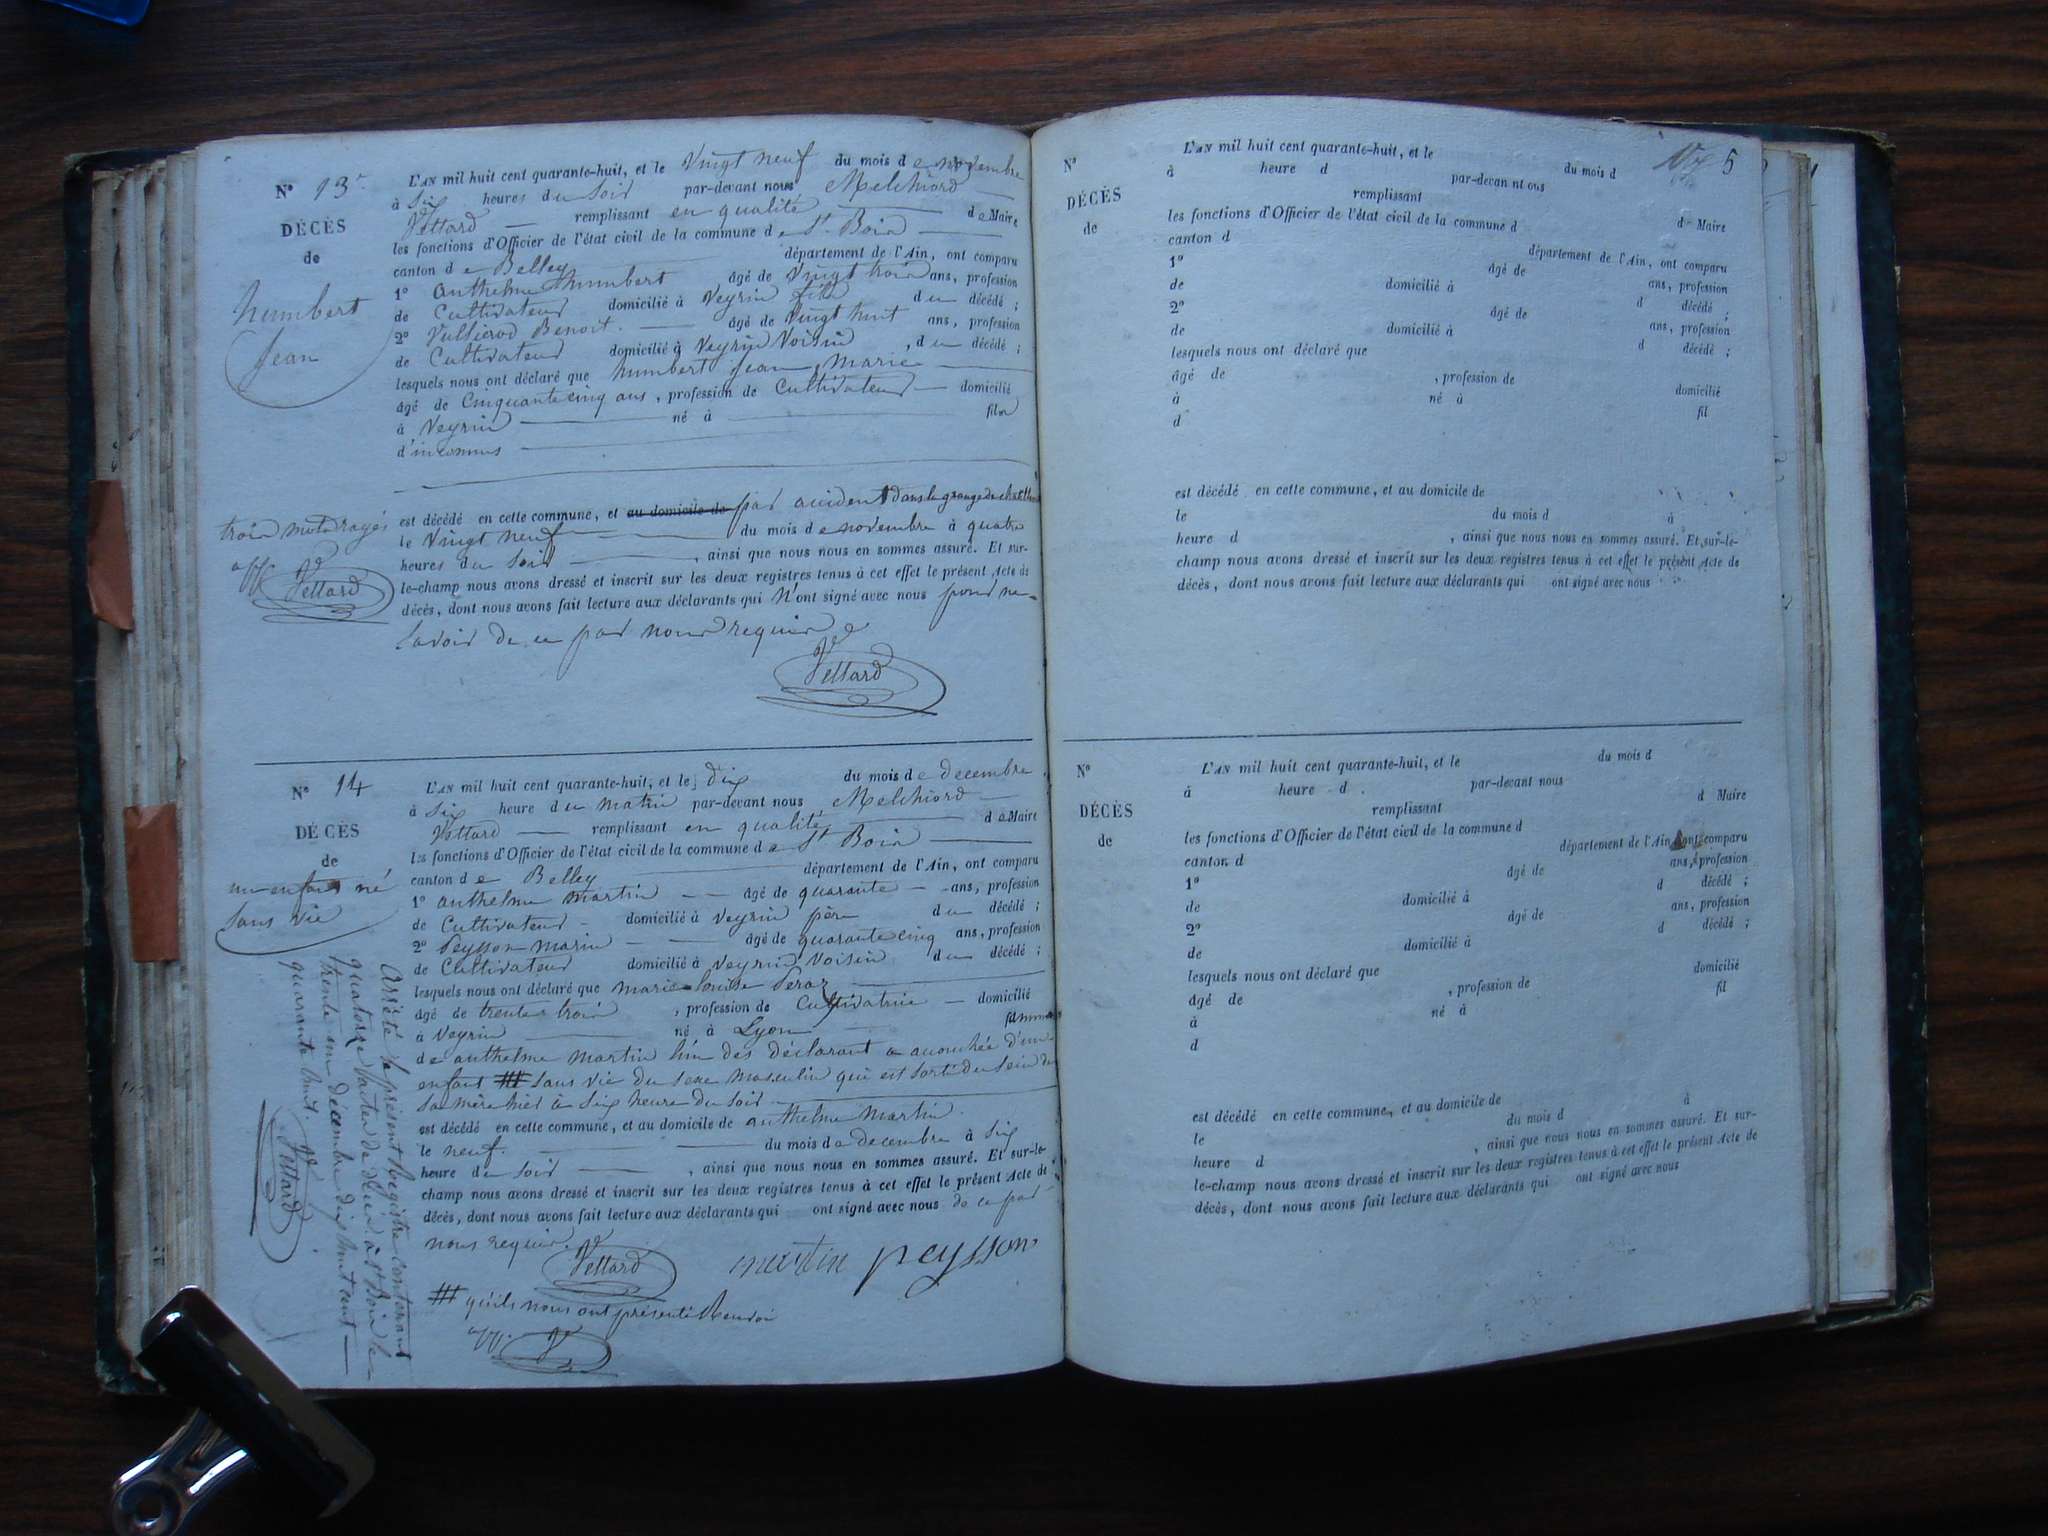 N° 13
DÉCÈS
de
humbert
Jean
L'AN mil huit cent quarante-huit, et le Vingt neuf du mois de novembre
à Six heures du Soir par-devant nous Melchiord
Vettard remplissant en qualité de Maire
les fonctions d'Officier de l'état civil de la commune de St Bois
canton de Belley département de l'Ain, ont comparu
1° anthelme humbert âgé de Vingt trois ans, profession
de Cultivateur domicilié à Veyrin fils du décédé ;
2° Vullierod Benoit âgé de Vingt huit ans, profession
de Cultivateur domicilié à Veyrin Voisin, du décédé ;
lesquels nous ont déclaré que humbert jean Marie
âgé de Cinquante cinq ans, profession de Cultivateur domicilié
à Veyrin né à fils
d'inconnus
est décédé en cette commune, et au domicile de par accident dans la grange de
le Vingt neuf du mois de novembre à quatre
heures du Soir, ainsi que nous nous en sommes assuré. Et sur-
le-champ nous avons dressé et inscrit sur les deux registres tenus à cet effet le présent Acte de
décès, dont nous avons fait lecture aux déclarants qui N'ont signé avec nous pour ne
Savoir de ce par nous requis
Vettard
trois mots rayés
app
Vettard
N° 14
DÉCÈS
de
un enfant né
Sans vie
L'AN mil huit cent quarante-huit, et le dix du mois de decembre
à Six heure du matin par-devant nous Melchiord
Vettard remplissant en qualité de Maire
les fonctions d'Officier de l'état civil de la commune de St Bois
canton de Belley département de l'Ain, ont comparu
1° anthelme martin âgé de quarante ans, profession
de Cultivateur domicilié à Veyrin père du décédé ;
2° Peysson marin âgé de quarante cinq ans, profession
de Cultivateur domicilié à Veyrin Voisin du décédé ;
lesquels nous ont déclaré que marie louise Peraz
âgé de trente trois, profession de Cultivatrice domicilié
à Veyrin né à Lyon femme
de anthelme martin l'un des déclarant a accouchée d'un
enfant ⧻ Sans vie du Sexe masculin qui est Sorti du Sein de
Sa mère hier à Six heure du Soir
est décédé en cette commune, et au domicile de anthelme martin
le neuf du mois de decembre à Six
heure du Soir, ainsi que nous nous en sommes assuré. Et sur-le-
champ nous avons dressé et inscrit sur les deux registres tenus à cet effet le présent Acte de
décès, dont nous avons fait lecture aux déclarants qui ont signé avec nous de ce par
nous requis
Vettard martin peysson
⧻ qu'ils nous ont présenté Renvoi
app.
Arrêté le présent Registre contenant
quatorze actes de décès à St Bois le
trente un décembre dix huit cent
quarante huit.
Vettard
5
N°
DÉCÈS
de
L'AN mil huit cent quarante-huit, et le du mois d
à heure d par-devan nt ous
remplissant d Maire
les fonctions d'Officier de l'état civil de la commune d
canton d département de l'Ain, ont comparu
1° âgé de ans, profession
de domicilié à d décédé ;
2° âgé de ans, profession
de domicilié à d décédé ;
lesquels nous ont déclaré que
âgé de , profession de domicilié
à né à fil
d
est décédé en cette commune, et au domicile de
le du mois d à
heure d , ainsi que nous nous en sommes assuré. Et sur-le-
champ nous avons dressé et inscrit sur les deux registres tenus à cet effet le présent Acte de
décès, dont nous avons fait lecture aux déclarants qui ont signé avec nous
N°
DÉCÈS
de
L'AN mil huit cent quarante-huit, et le du mois d
à heure d par-devant nous
remplissant d Maire
les fonctions d'Officier de l'état civil de la commune d
canton d département de l'Ain, ont comparu
1° âgé de ans, profession
de domicilié à d décédé ;
2° âgé de ans, profession
de domicilié à d décédé ;
lesquels nous ont déclaré que
âgé de , profession de domicilié
à né à fil
d
est décédé en cette commune, et au domicile de
le du mois d à
heure d , ainsi que nous nous en sommes assuré. Et sur-
le-champ nous avons dressé et inscrit sur les deux registres tenus à cet effet le présent Acte de
décès, dont nous avons fait lecture aux déclarants qui ont signé avec nous